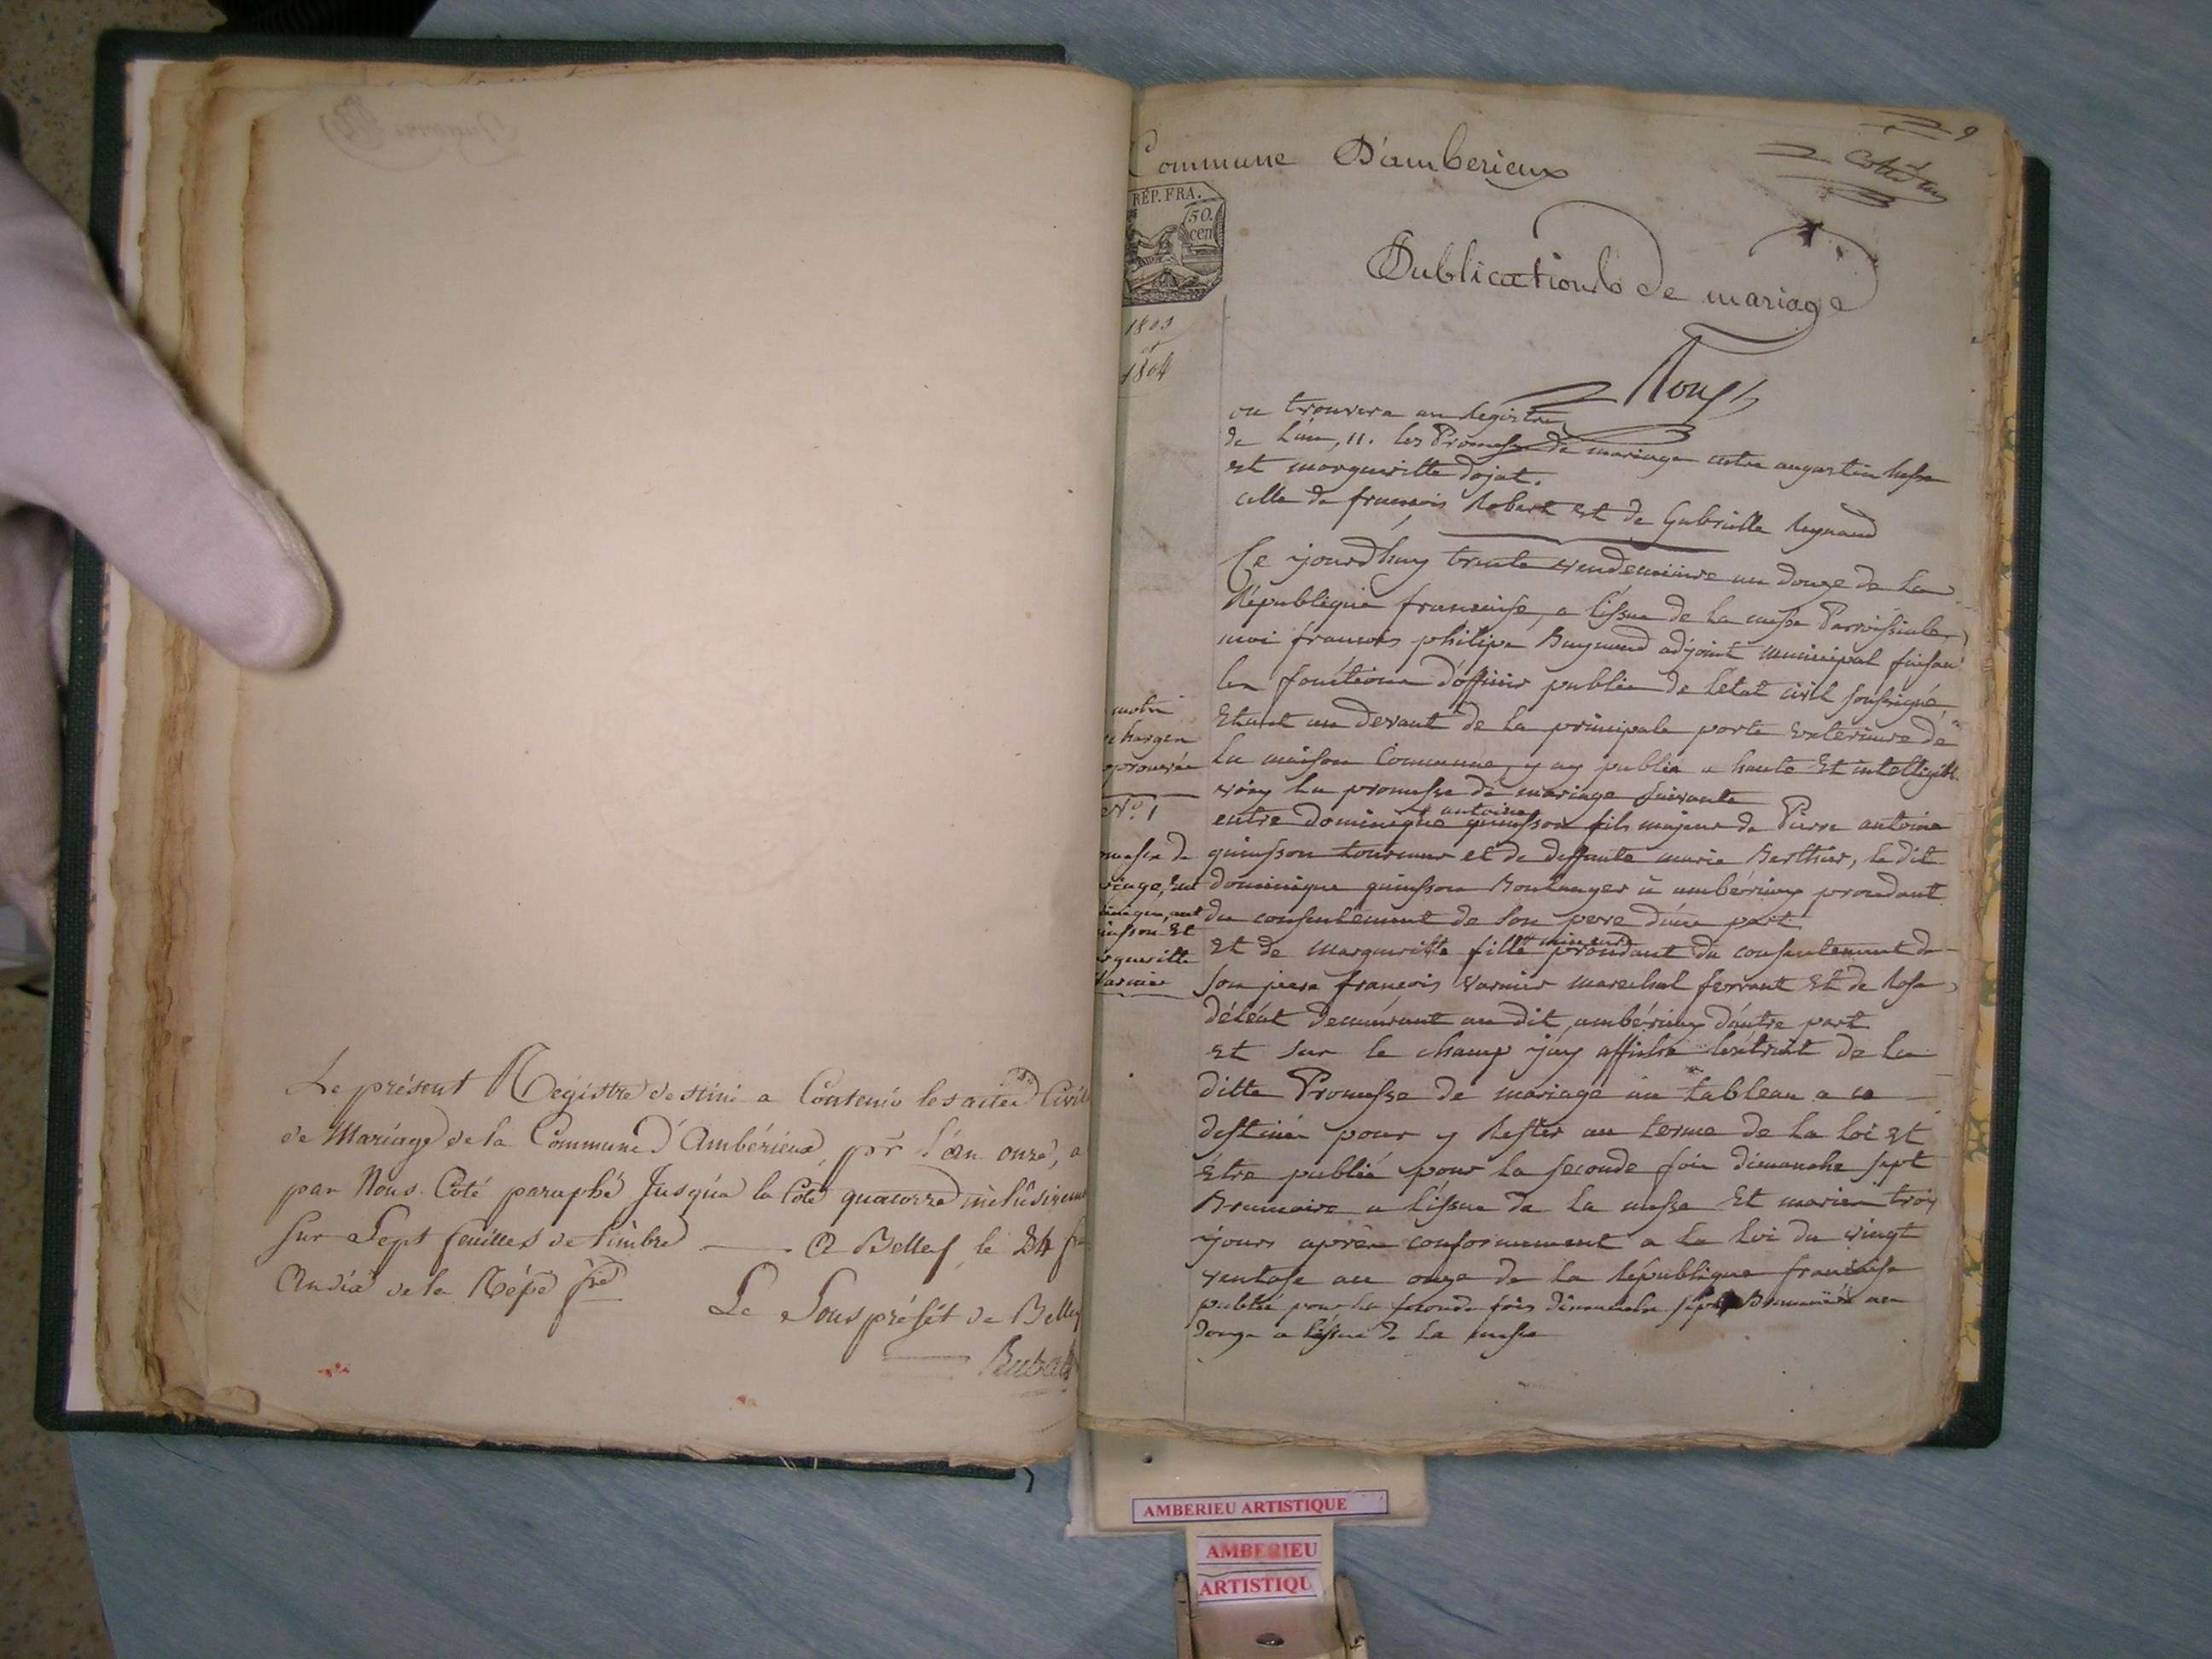 Le présent Registre destiné a Contenir les actes Civil
de Mariage de la Commune d'Ambérieux, pr l'an onze, a
par Nous Coté paraphé Jusqu'a la Cote quatorze inclusiveme
Sur Sept feuilles de timbre — A Belley, le 24
An dix de la Répe fse
Le Sous préfet de Belley
Commune D'amberieux
RÉP. FRA.
50.
cen
1803
et
1804
9
Publications de mariage
on trouvera au Registre
de L'an, 11. les Promesse de mariage entre augustin
et margueritte dojat.
celle de francois Robert Et de Gabrielle Reynaud
Ce jourd'huy trente vendemiaire an douze de La
République francaise, a l'issue de la messe Parroissiale,
moi francois philipe adjoint municipal faisan
les fonctions d'officier public de L'etat civil soussigné,
Etant au devant de la principale porte exterieure de
La maison Commune, y ay publié a haute Et intelligible
voix la promesse de mariage suivante
entre Dominique antoine quinsson fils majeur de Pierre antoine
quinsson tourneur et de deffunte marie Berthier, le dit
dominique quinsson Boulanger à ambérieux procedant
du consentement de son pere d'une part
Et de Margueritte fille mineure procedant du consentement de
son pere francois varnier marechal ferrant Et de Rose
demeurant au dit ambérieux d'autre part
Et sur le champ j'ay affiché l'extrait de la
ditte Promesse de mariage au tableau a ce
destiné pour y Rester au terme de la loi et
Etre publié pour la seconde fois dimanche sept
Brumaire a l'issue de La messe Et mariés trois
jours après conformement a la loi du vingt
ventose an onze de la République francaise
publié pour la seconde fois dimanche sept Brumaire an
douze a l'issue de La messe
chargen
N.° 1
omesse de
riage, ent
inique, ant
insson Et
rgueritte
Varnier
AMBERIEU ARTISTIQUE
AMBERIEU
ARTISTIQU